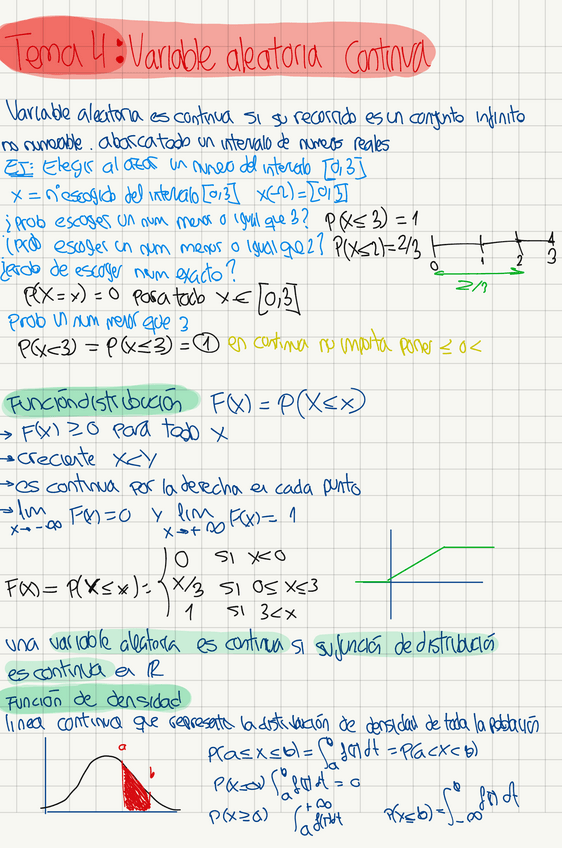 Tema 4: Variable aleatoria Continua
Variable aleatoria es continua si su recorrido es un conjunto infinito
no numerable. abarca todo un intervalo de numeros reales
EJ: Elegir al azar un numero del intervalo [0,3]
X = nº escogido del intervalo [0,3] X(Ω) = [0,3]
¿prob escoger un num menor o igual que 3? P(X≤3) = 1
¿prob escoger un num menor o igual que 2? P(X≤2) = 2/3
0 1 2 3
2/3
¿prob de escoger num exacto?
P(X=x) = 0 para todo x ∈ [0,3]
prob un num menor que 3
P(X<3) = P(X≤3) = 1 en continua no importa poner ≤ o <
Función distribución F(x) = P(X≤x)
→ F(x) ≥ 0 para todo x
→ creciente x<y
→ es continua por la derecha en cada punto
→ lim x→-∞ F(x) = 0 y lim x→+∞ F(x) = 1
F(x) = P(X≤x) = { 0 si x<0
x/3 si 0≤x≤3
1 si 3<x
una variable aleatoria es continua si su función de distribución
es continua en ℝ
Función de densidad
linea continua que representa la distribución de densidad de toda la población
a b
P(a≤x≤b) = ∫ₐᵇ f(t) dt = P(a<x<b)
∫ₐ f(t) dt = 0
P(X≥a) ∫ₐ^+∞ f(t) dt P(X≤b) = ∫₋∞ᵇ f(t) dt